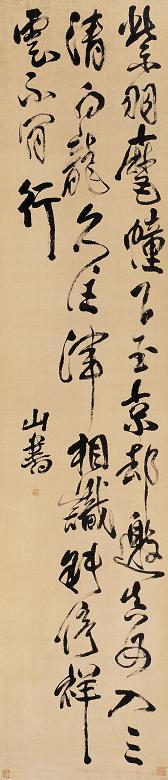 紫羽麾幢下玉京却邀真母入三
清白龍久住渾相識斜倚祥
雲不肯行
山書